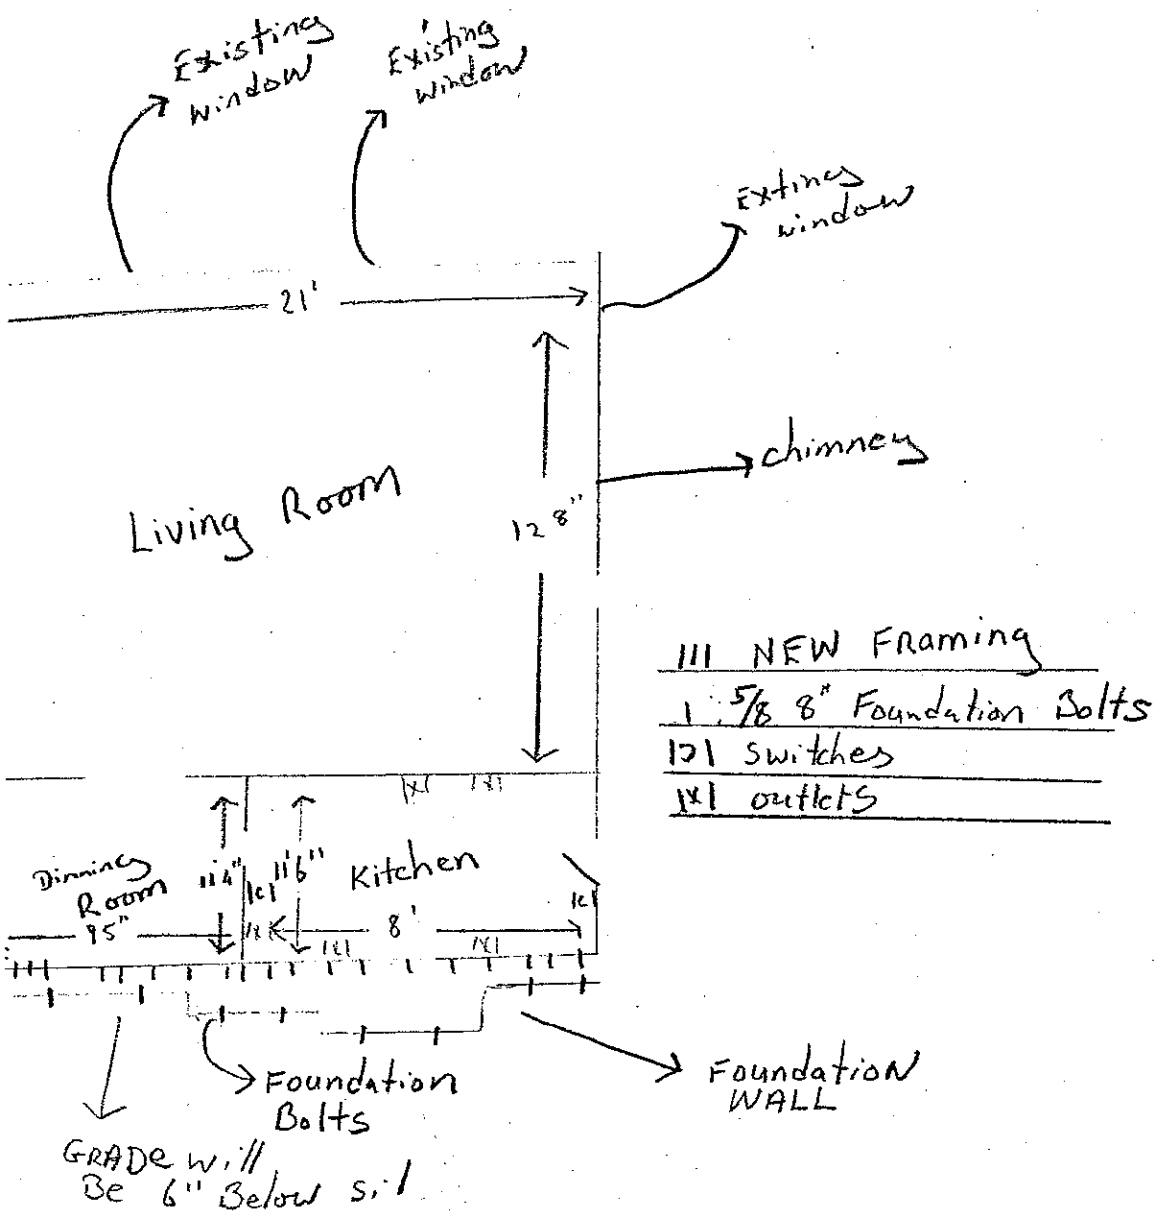 Existing
window
Existing
window
Extineg
window
21'
chimney
Living Room
12 8"
III NEW FRaming
I 5/8 8" Foundation Bolts
switches
|x| outlets
Dinning
Room
95"
11'4"
11'6"
Kitchen
8'
Foundation
Bolts
Foundation
WALL
GRADe will
Be 6" Below sil